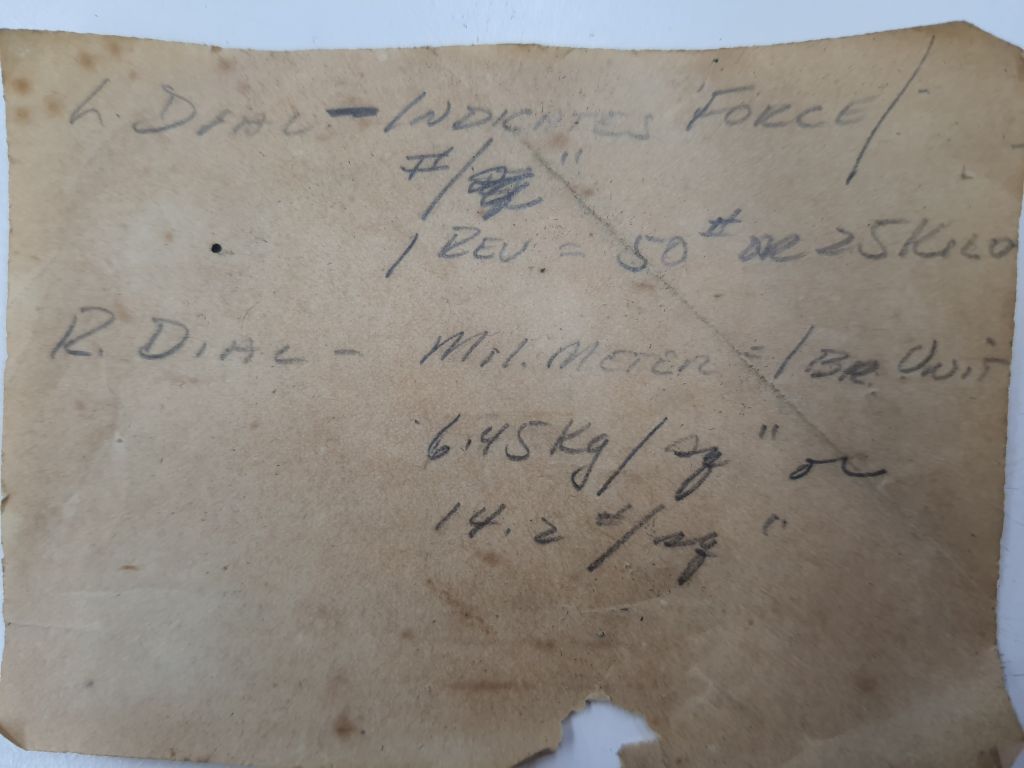 L. DIAL - INDICATES FORCE /
#/ "
1 REV = 50 # OR 25 KILO
R. DIAL - MIL. METER = 1 BR. UNIT
6.45 Kg / sq " or
14.2 #/sq "